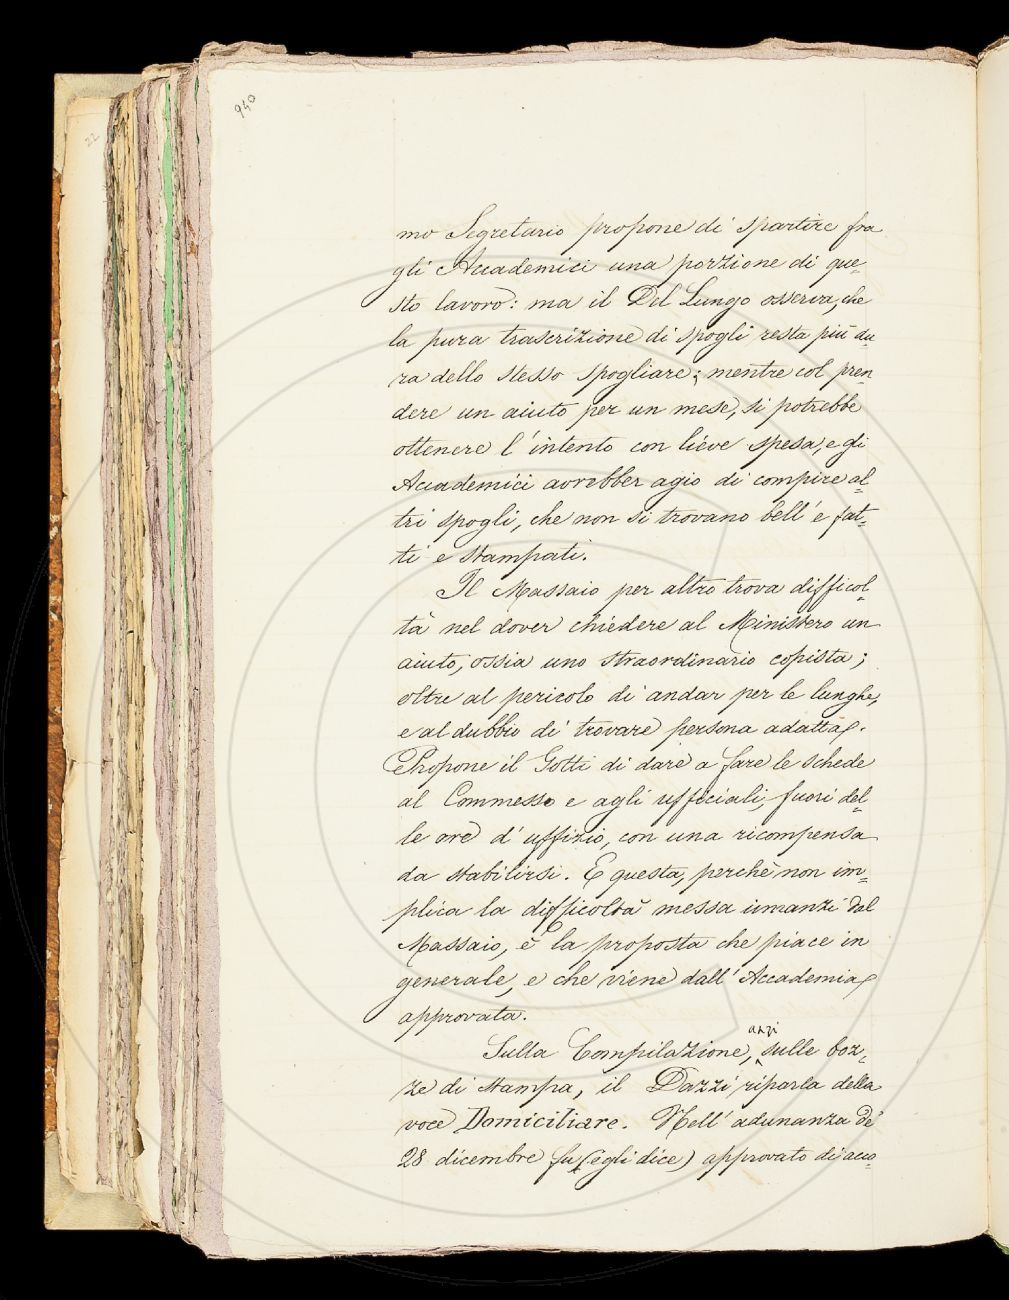 940
22
mo Segretario propone di spartire fra
gli Accademici una porzione di que=
sto lavoro: ma il Del Lungo osserva, che
la pura trascrizione di spogli resta più du=
ra dello stesso spogliare; mentre col pren=
dere un aiuto per un mese, si potrebbe
ottenere l'intento con lieve spesa, e gli
Accademici avrebber agio di compire al=
tri spogli, che non si trovano bell'e fat=
ti e stampati.
Il Massaio per altro trova difficol=
tà nel dover chiedere al Ministero un
aiuto, ossia uno straordinario copista;
oltre al pericolo di andar per le lunghe,
e al dubbio di trovare persona adatta.
Propone il Gotti di dare a fare le schede
al Commesso e agli ufficiali, fuori del=
le ore d'uffizio, con una ricompensa
da stabilirsi. E questa, perchè non im=
plica la difficoltà messa innanzi dal
Massaio, è la proposta che piace in
generale, e che viene dall'Accademia
approvata.
Sulla Compilazione, anzi sulle boz=
ze di stampa, il Dazzi riparla della
voce Domiciliare. Nell'adunanza de'
28 dicembre fu (egli dice) approvato di acco=